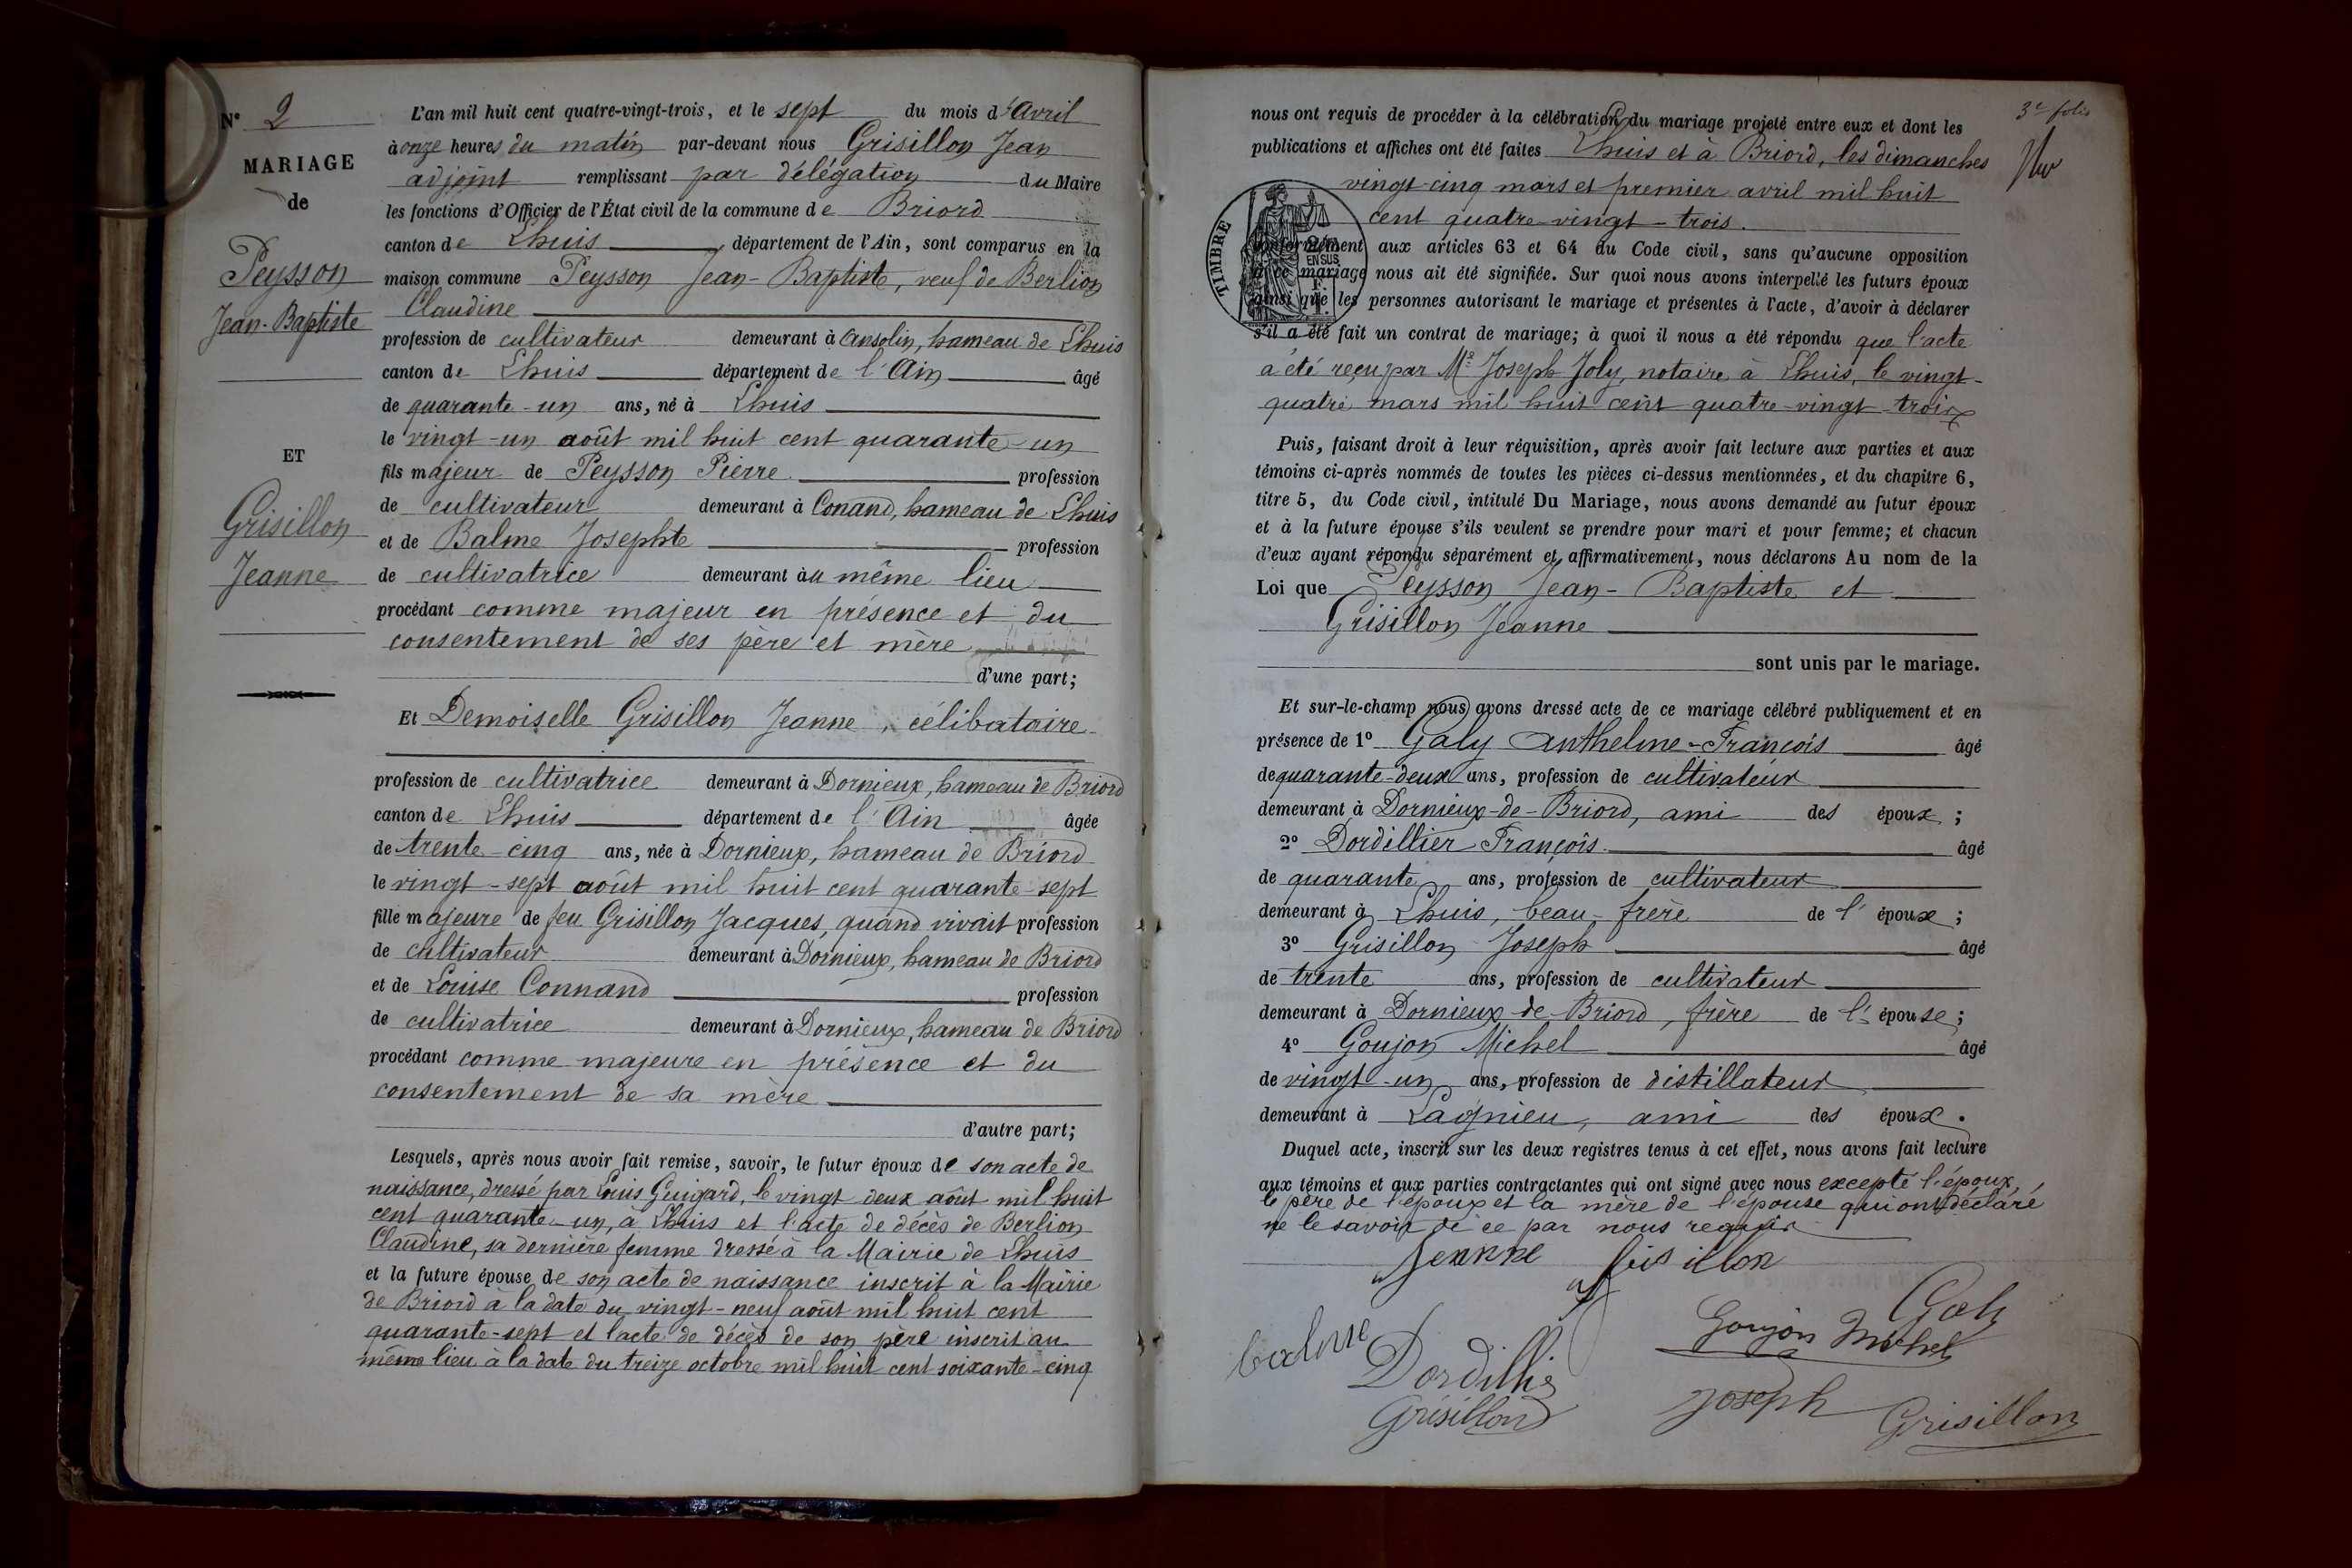 N° 2
MARIAGE
de
Peysson
Jean-Baptiste
ET
Grisillon
Jeanne
L'an mil huit cent quatre-vingt-trois, et le sept du mois d'Avril
à onze heures du matin par-devant nous Grisillon Jean
adjoint remplissant par délégation du Maire
les fonctions d'Officier de l'État civil de la commune de Briord
canton de Lhuis, département de l'Ain, sont comparus en la
maison commune Peysson Jean-Baptiste, veuf de Berlion
Claudine
profession de cultivateur demeurant à Ansolin, hameau de Lhuis
canton de Lhuis département de l'Ain âgé
de quarante-un ans, né à Lhuis
le vingt-un août mil huit cent quarante-un
fils majeur de Peysson Pierre profession
de cultivateur demeurant à Conand, hameau de Lhuis
et de Balme Josephte profession
de cultivatrice demeurant au même lieu
procédant comme majeur en présence et du
consentement de ses père et mère
d'une part;
Et Demoiselle Grisillon Jeanne, célibataire
profession de cultivatrice demeurant à Dornieux, hameau de Briord
canton de Lhuis département de l'Ain âgée
de trente-cinq ans, née à Dornieux, hameau de Briord
le vingt-sept août mil huit cent quarante-sept
fille majeure de feu Grisillon Jacques, quand vivait profession
de cultivateur demeurant à Dornieux, hameau de Briord
et de Louise Connand profession
de cultivatrice demeurant à Dornieux, hameau de Briord
procédant comme majeure en présence et du
consentement de sa mère
d'autre part;
Lesquels, après nous avoir fait remise, savoir, le futur époux de son acte de
naissance, dressé par Louis Guigard, le vingt deux août mil huit
cent quarante-un, à Lhuis et l'acte de décès de Berlion
Claudine, sa dernière femme dressé à la Mairie de Lhuis
et la future épouse de son acte de naissance inscrit à la Mairie
de Briord à la date du vingt-neuf août mil huit cent
quarante-sept et l'acte de décès de son père inscrit au
même lieu à la date du treize octobre mil huit cent soixante-cinq
3e folio
nous ont requis de procéder à la célébration du mariage projeté entre eux et dont les
publications et affiches ont été faites Lhuis et à Briord, les dimanches
vingt-cinq mars et premier avril mil huit
cent quatre-vingt-trois.
TIMBRE
EN SUS
conformément aux articles 63 et 64 du Code civil, sans qu'aucune opposition
à ce mariage nous ait été signifiée. Sur quoi nous avons interpellé les futurs époux
ainsi que les personnes autorisant le mariage et présentes à l'acte, d'avoir à déclarer
s'il a été fait un contrat de mariage; à quoi il nous a été répondu que l'acte
a été reçu par Me Joseph Joly, notaire à Lhuis, le vingt-
quatre mars mil huit cent quatre-vingt-trois
Puis, faisant droit à leur réquisition, après avoir fait lecture aux parties et aux
témoins ci-après nommés de toutes les pièces ci-dessus mentionnées, et du chapitre 6,
titre 5, du Code civil, intitulé Du Mariage, nous avons demandé au futur époux
et à la future épouse s'ils veulent se prendre pour mari et pour femme; et chacun
d'eux ayant répondu séparément et affirmativement, nous déclarons Au nom de la
Loi que Peysson Jean-Baptiste et
Grisillon Jeanne
sont unis par le mariage.
Et sur-le-champ nous avons dressé acte de ce mariage célébré publiquement et en
présence de 1° Galy Anthelme-François âgé
de quarante-deux ans, profession de cultivateur
demeurant à Dornieux-de-Briord, ami des époux;
2° Dordillier François âgé
de quarante ans, profession de cultivateur
demeurant à Lhuis, beau-frère de l'époux;
3° Grisillon Joseph âgé
de trente ans, profession de cultivateur
demeurant à Dornieux-de-Briord, frère de l'épouse;
4° Goujon Michel âgé
de vingt-un ans, profession de distillateur
demeurant à Lagnieu, ami des époux.
Duquel acte, inscrit sur les deux registres tenus à cet effet, nous avons fait lecture
aux témoins et aux parties contractantes qui ont signé avec nous excepté l'époux,
le père de l'époux et la mère de l'épouse qui ont déclaré
ne le savoir de ce par nous requis
Jeanne Grisillon
Galy
Goujon Michel
balme
Dordillie
Grisillon
Joseph Grisillon